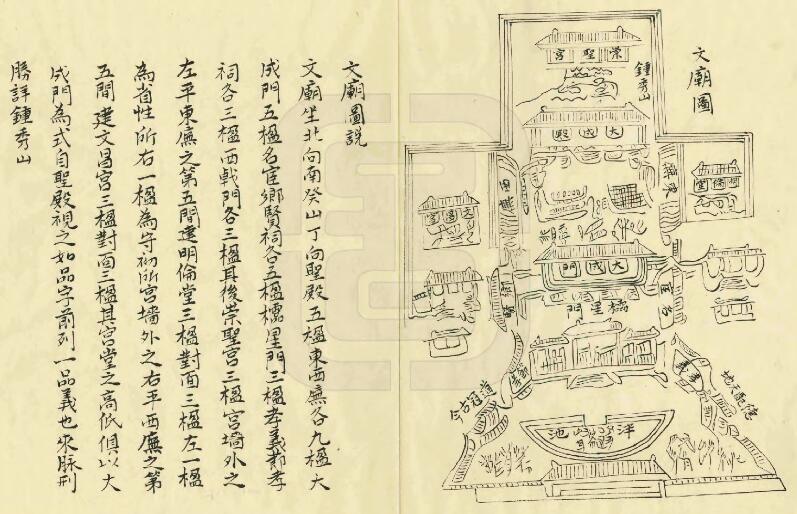 文廟圖
鍾秀山
崇聖宮
大成殿
東廡
西廡
明倫堂
文昌宮
大成門
櫺星門
泮池
德配天地
道冠古今
文廟圖說
文廟坐北向南癸山丁向聖殿五楹東西廡各九楹大
成門五楹名宦鄉賢祠各五楹櫺星門三楹孝義節孝
祠各三楹西戟門各三楹其後崇聖宮三楹宮墻外之
左平東廡之第五間建明倫堂三楹對面三楹左一楹
為省性所右一楹為守初所宮墻外之右平西廡之第
五間建文昌宮三楹對面三楹其宮堂之高低俱以大
成門為式自聖殿視之如品字前列一品義也來脉刑
勝詳鍾秀山